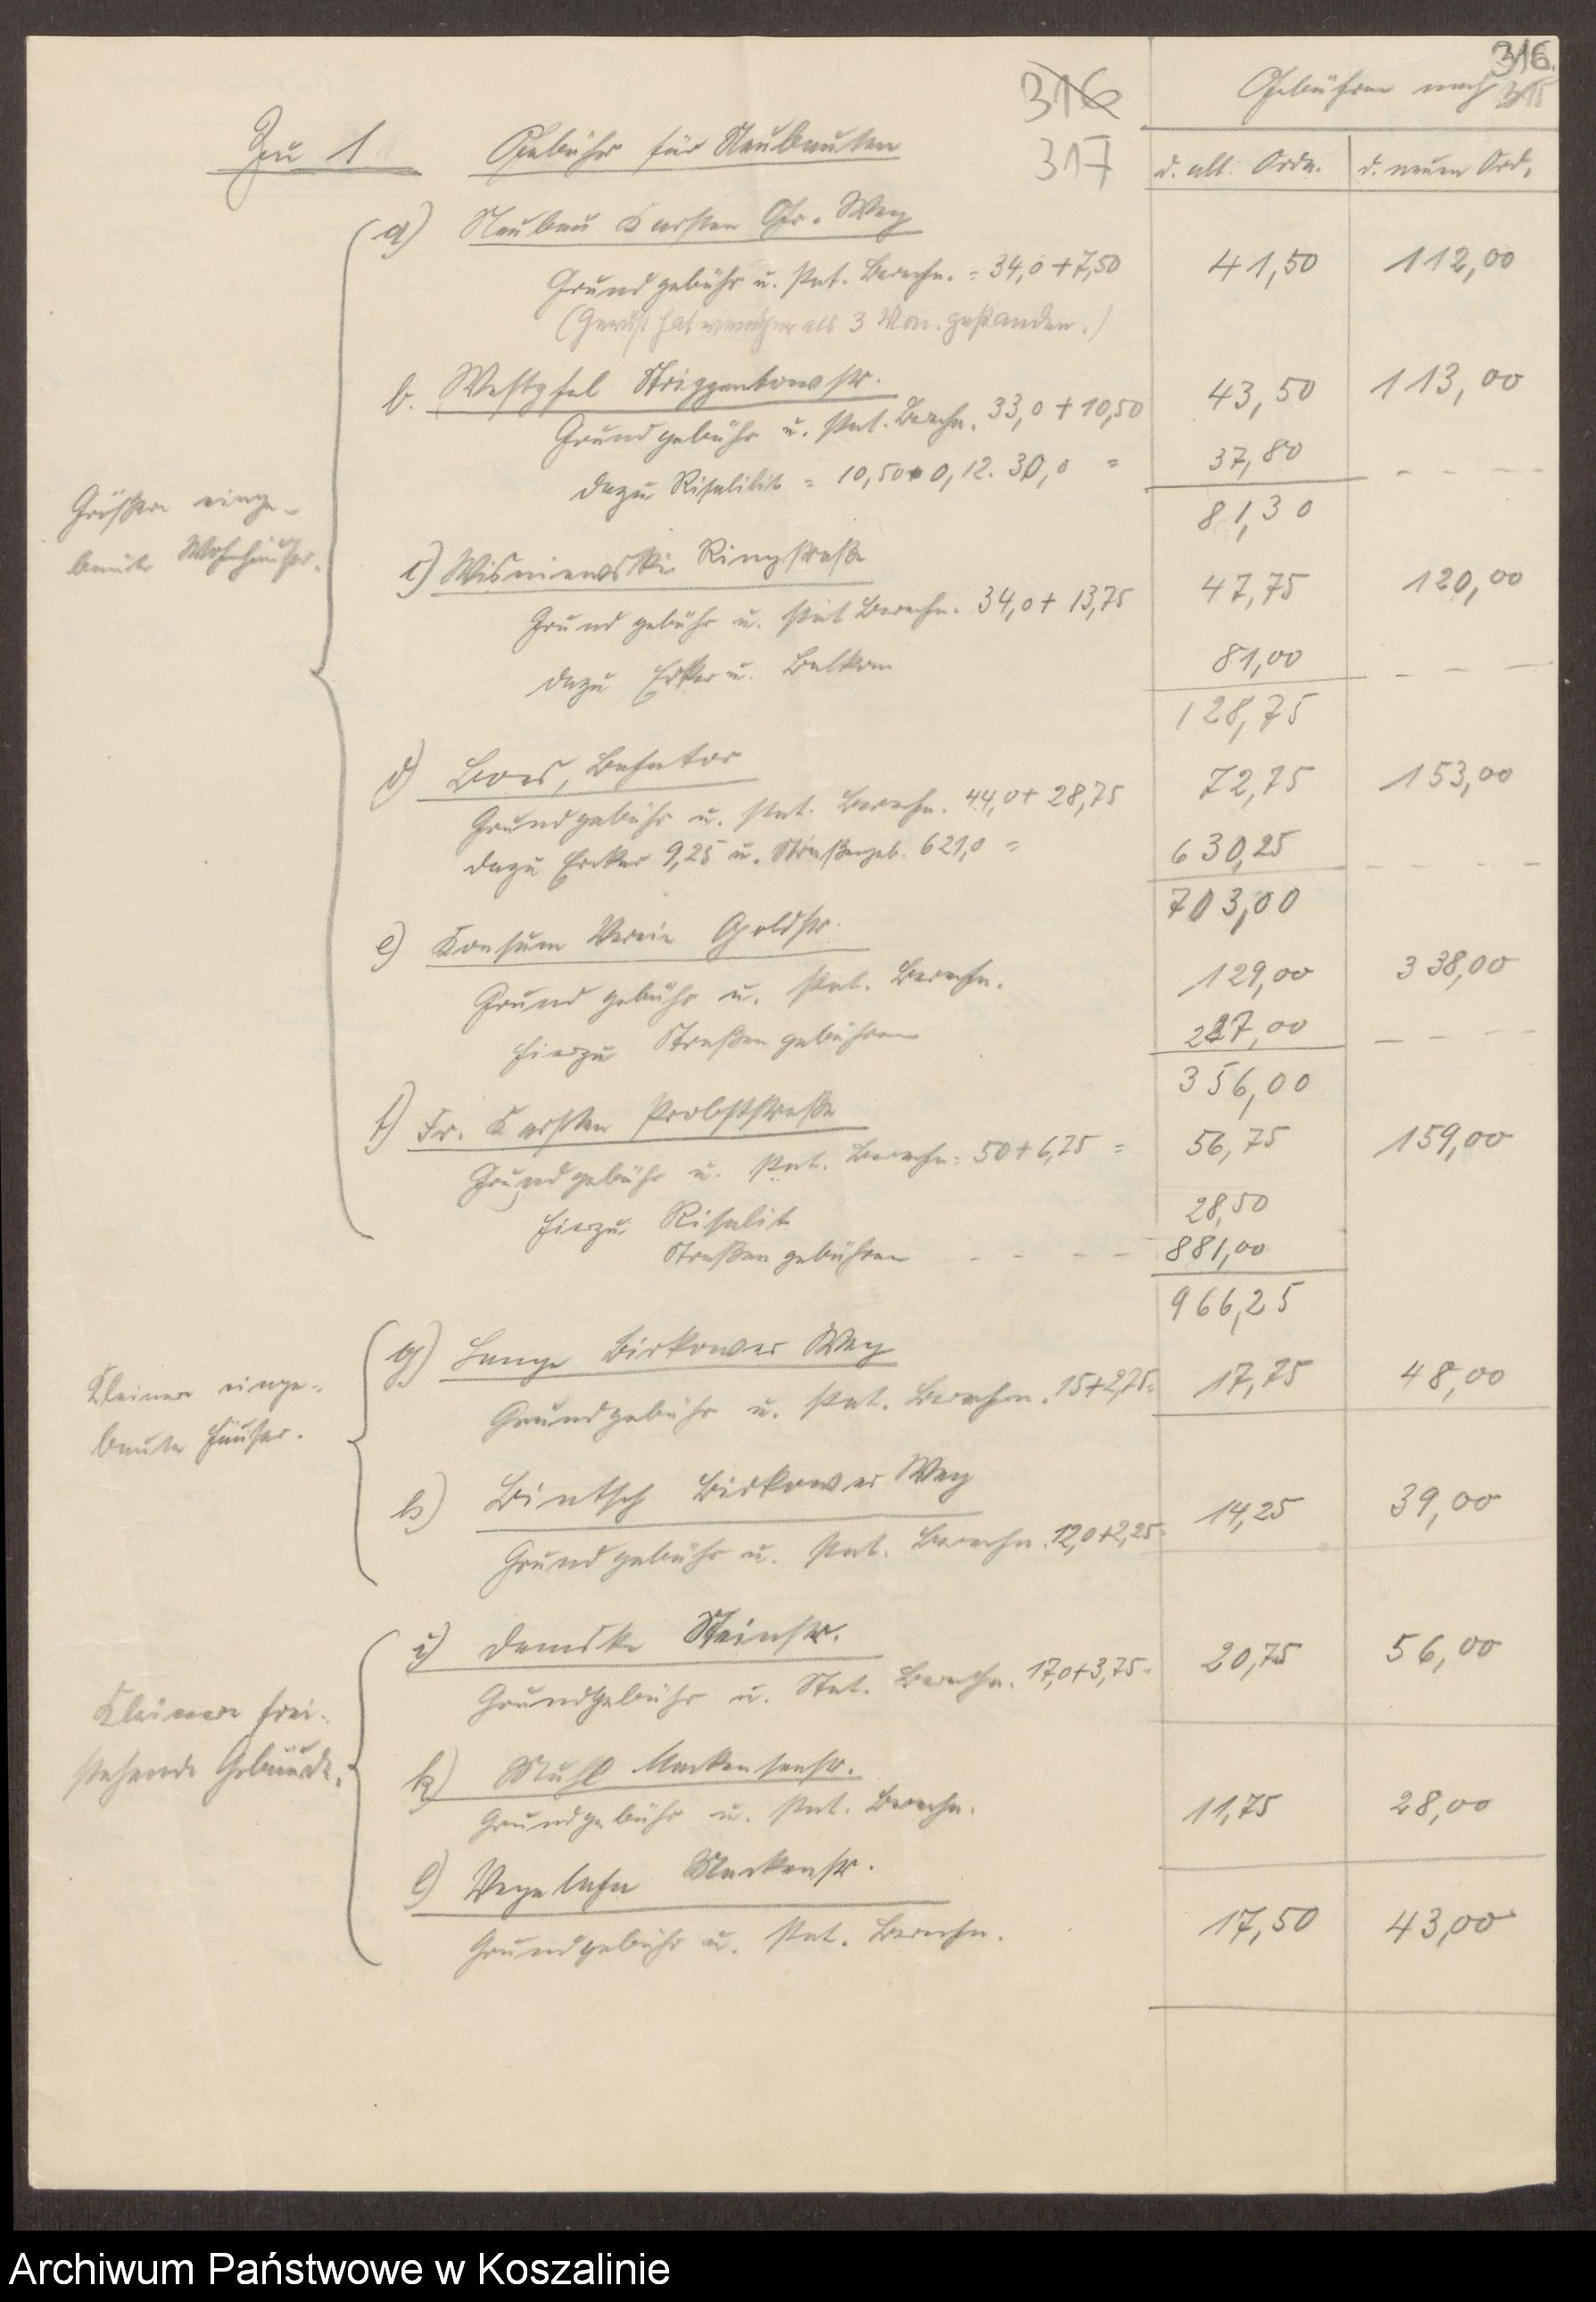 316.
316
317
315
Gebühren nach
Zu 1 Gebühr für Neubauten
d. alt. Ordn. d. neuen Ord.
a) Neubau Karsten Gr. Weg
Grundgebühr u. stat. Berechn. = 34,0 + 7,50 41,50 112,00
(Gerüst hat weniger als 3 Mon. gestanden.)
b. Westpfal Striggenbowstr.
Grundgebühr u. stat. Berechn. 33,0 + 10,50 43,50 113,00
dazu Risalit = 10,50 + 0,12. 30,0 = 37,80 - - - -
81,30
Größere einge-
baute Wohnhäuser.
c) Wisniewski Ringstraße
Grundgebühr u. stat Berechn. 34,0 + 13,75 47,75 120,00
dazu Erker u. Balkon 81,00 - - -
128,75
d) Boes,
Grundgebühr u. stat. Berechn. 44,0 + 28,75 72,75 153,00
dazu Erker 9,25 u. Straßengeb. 621,0 = 630,25 - - - - -
703,00
e) Konsum Verein Goldstr.
Grundgebühr u. stat. Berechn. 129,00 338,00
hierzu Straßengebühren 227,00 - - - -
356,00
f) Fr. Karsten Probststraße
Grundgebühr u. stat. Berechn. 50 + 6,75 = 56,75 159,00
hierzu Risalit 28,50
Straßengebühren - - - - 881,00
966,25
Kleinere einge-
baute Häuser.
g) Lange Birkower Weg
Grundgebühr u. stat. Berechn. 15 + 2,75 = 17,75 48,00
h) Bintsch Birkower Weg
Grundgebühr u. stat. Berechn. 12,0 + 2,25 = 14,25 39,00
Kleinere frei-
stehende Gebäude.
i) Damske Steinstr.
Grundgebühr u. Stat. Berechn. 17,0 + 3,75 = 20,75 56,00
k) Muhl Mackensenstr.
Grundgebühr u. stat. Berechn. 11,75 28,00
l) Mackenstr.
Grundgebühr u. stat. Berechn. 17,50 43,00
Archiwum Państwowe w Koszalinie